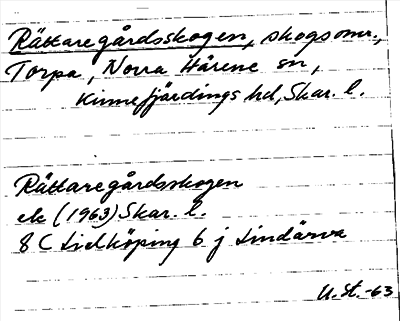 Rättaregårdsskogen, skogsomr.,
Torpa, Norra Härene sn,
Kinnefjärdings hd, Skar. l.
Rättaregårdsskogen
ek (1963) Skar. l.
8 C Lidköping 6 j Lindärva
U. St. -63